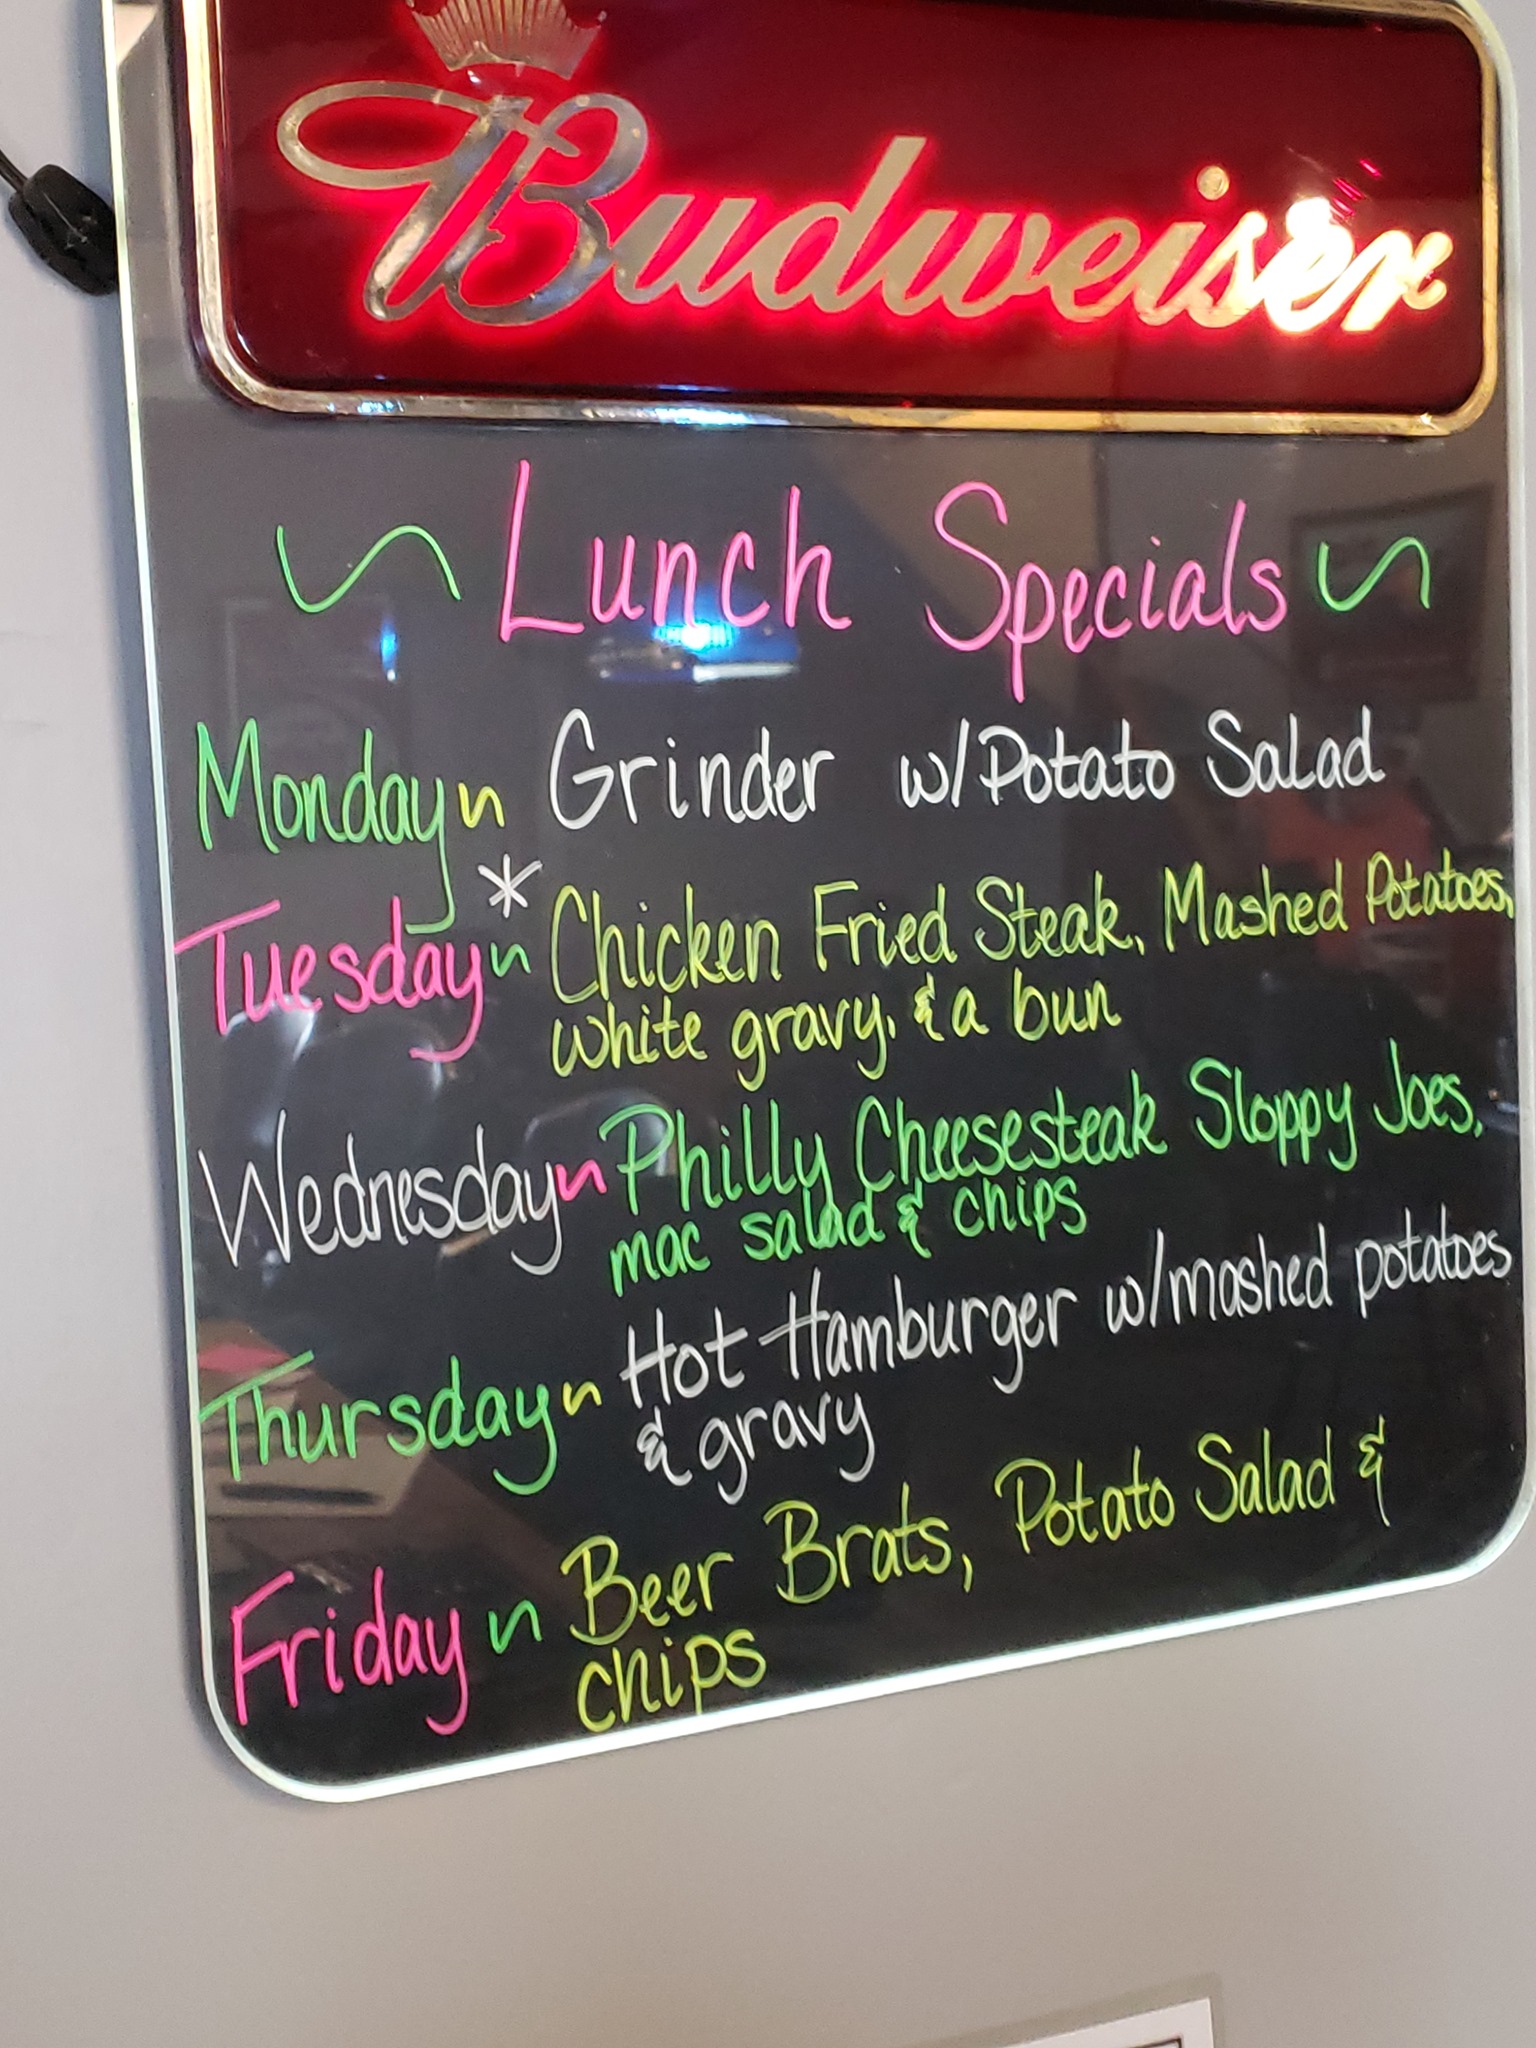 Budweiser
~ Lunch Specials ~
Monday ~ Grinder w/Potato Salad
Tuesday ~ * Chicken Fried Steak, Mashed Potatoes,
white gravy, & a bun
Wednesday ~ Philly Cheesesteak Sloppy Joes,
mac salad & chips
Thursday ~ Hot Hamburger w/mashed potatoes
& gravy
Friday ~ Beer Brats, Potato Salad &
chips